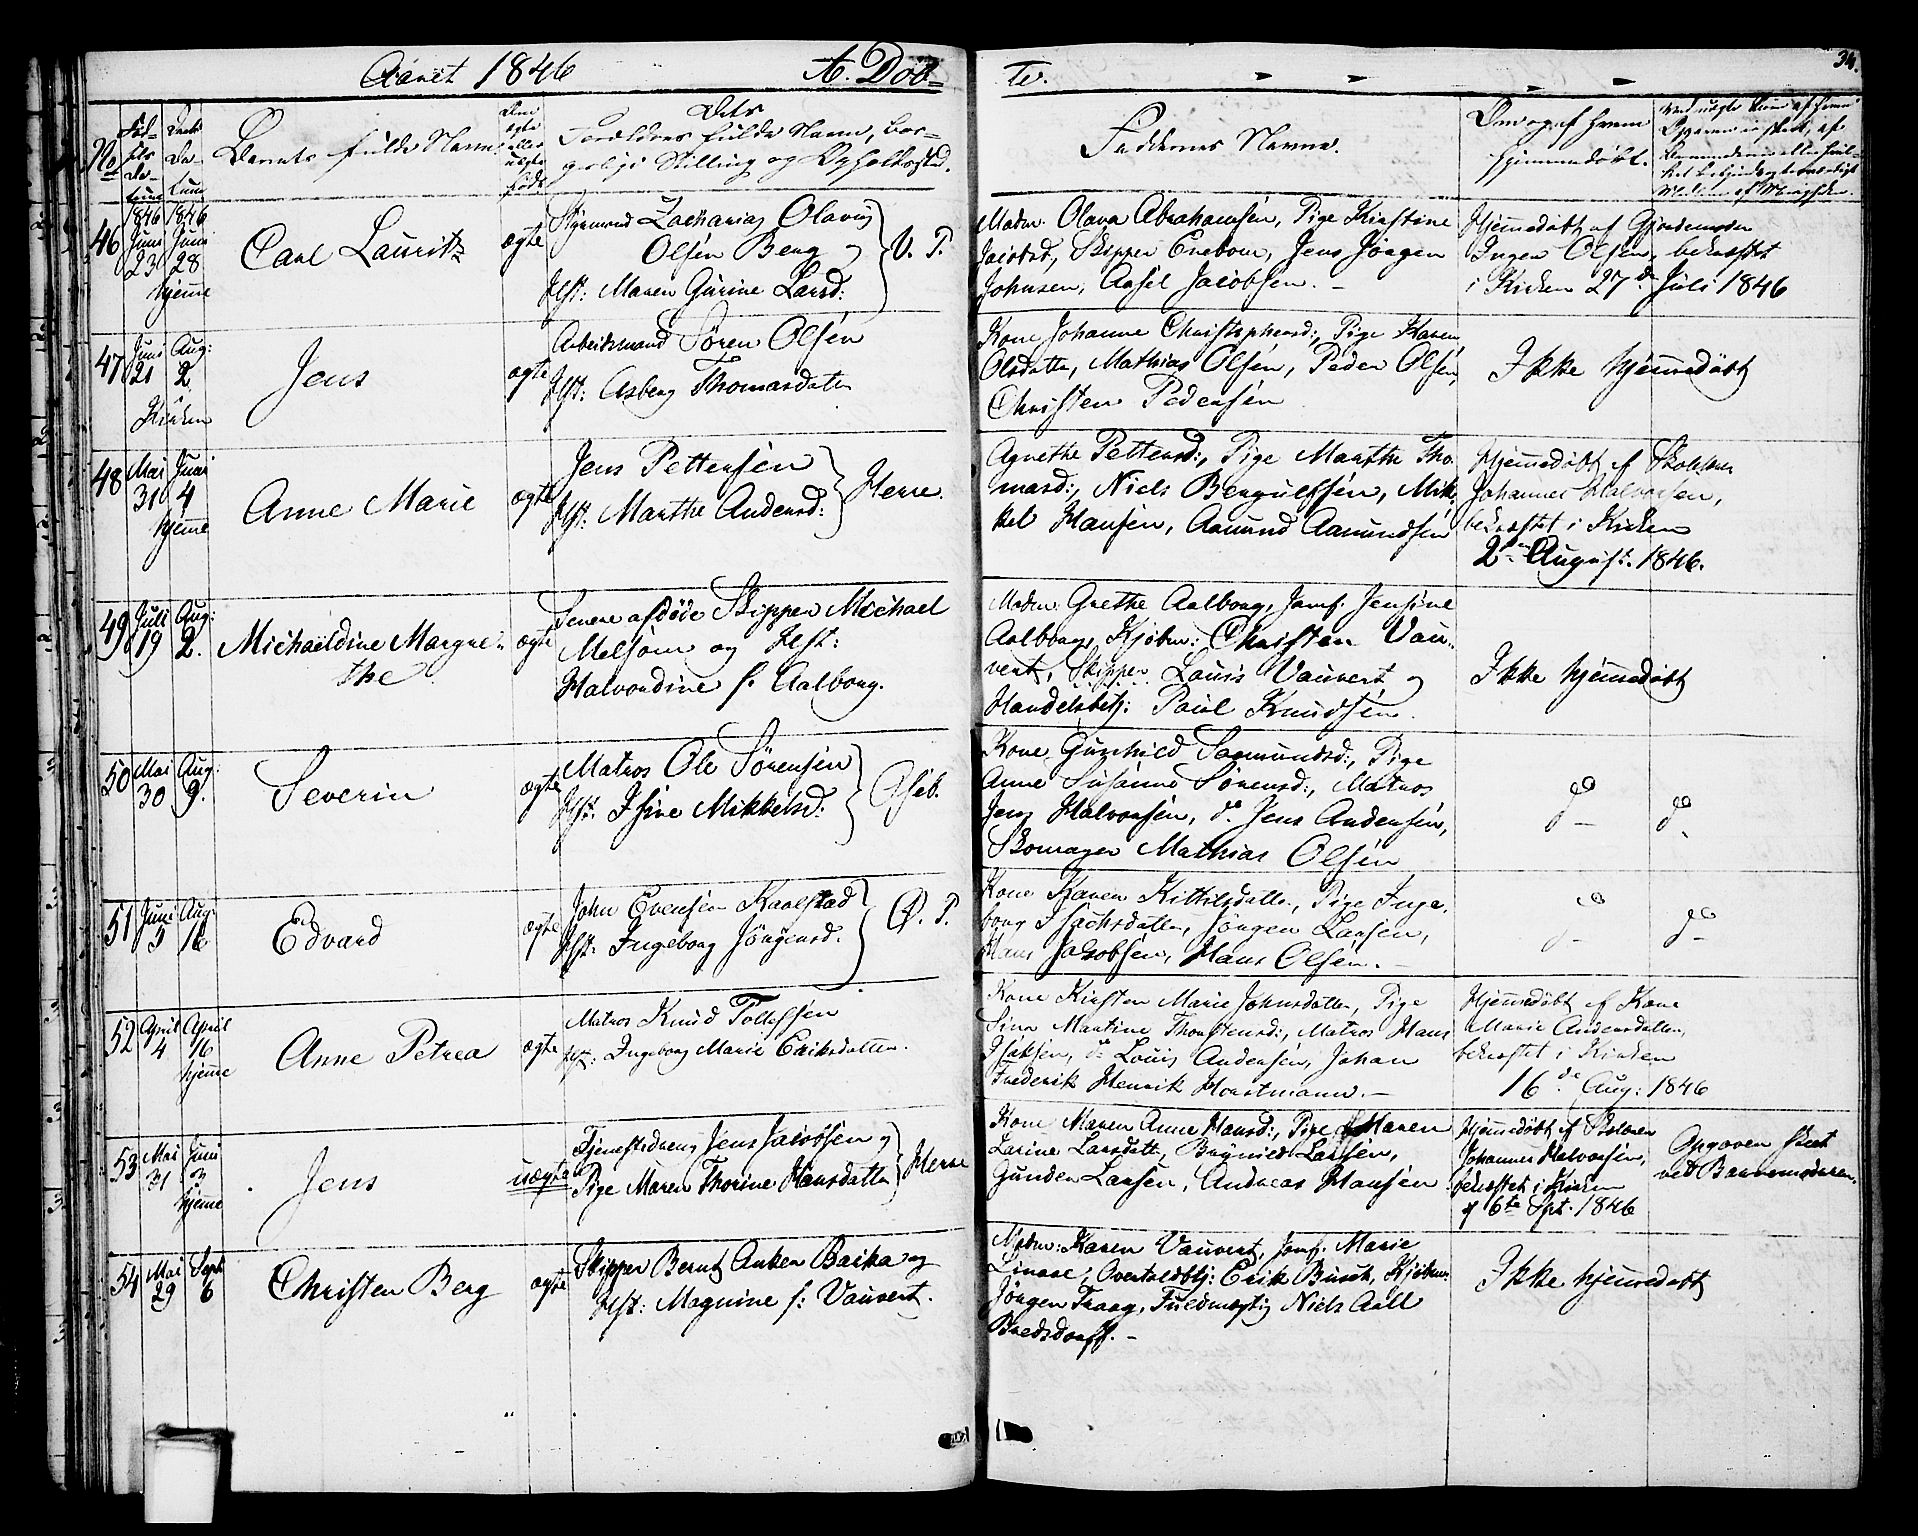 Aaret 1846 A. Döb-
te.
34.
No
Barnets fulde Navn.
Dets
Forældres fulde Navne, bor-
gerlige Stilling og Opholdssted.
Faddernes Navne.
Om og af hvem
hjemmedöbt.
46
1846
Juni
23
1846
Juni
28
hjemme
Carl Lauritz
ægte
Styrmand Zacharias Olavus
Olsen Berg og
Hst: Maren Gurine Larsd:
V. P.
Madm: Olava Abrahamsen, Pige Kirstine
Jacobsd, Skipper Enebom, Jens Jörgen
Johnsen, Axsel Jacobsen. –
Hjemmedöbt af Gjordemoder
Inger Olsen, bekræftet
i Kirken 27de Juli 1846
47
Juni
21
Aug:
2
i
Kirken
Jens
ægte
Arbeidsmand Sören Olsen
Hst: Asberg Thomasdatter
Kone Johanne Christophersd:, Pige Karen
Olsdatter, Mathias Olsen, Peder Olsen,
Christen Pedersen
Ikke hjemmedöbt
48
Mai
31
Juni
4
hjemme
Anne Marie
ægte
Jens Pettersen
Hst: Marthe Andersd:
Herre.
Agnethe Pettersd:, Pige Marthe Tho-
masd:, Niels Bergulfsen, Mik-
kel Hansen, Aamund Aamundsen
Hjemmedöbt af Skolelærer
Johannes Halvorsen,
bekræftet i Kirken
2den August. 1846.
49
Juli
19
Aug:
2.
Michaeldine Margre-
the
ægte
Senere afdöde Skipper Michael
Melsom og Hst:
Halvordine f. Aalborg.
Madm: Grethe Aalborg, Jomf. Jensine
Aalborg, Kjöbm: Christen Vau-
vert, Skipper Louis Vauvert og
Handelsbetj: Paul Knudsen.
Ikke hjemmedöbt
50
Mai
30
Aug:
9.
Severin
ægte
Matros Ole Sörensen
Hst: Isine Mikkelsd:
Gseb.
Kone Gunhild Saamundsd:, Pige
Anne Susanne Sörensd:, Matros
Jens Halvorsen, do Jens Andersen,
Skomager Mathias Olsen
do –
do –
51
Juni
5
Aug:
16
Edvard
ægte
John Evensen Kaalstad
Hst: Ingeborg Jörgensd.
Ø. P.
Kone Karen Kittilsdatter, Pige Inge-
borg Isachsdatter, Jörgen Larsen,
Hans Jakobsen, Hans Olsen. –
do –
do –
52
April
4
April
16
hjemme
Anne Petrea
ægte
Matros Knud Tollefsen
Hst: Ingeborg Marie Eriksdatter.
Kone Kirsten Marie Johnsdatter, Pige
Sina Martine Thorstensd:, Matros Hans
Isaksen, do Louis Andersen, Johan
Frederik Henrik Horstmann. –
Hjemmedöbt af Kone
Marie Andersdatter,
bekræftet i Kirken
16de Aug: 1846
53
Mai
31
Juni
3
hjemme
Jens
uægte
Tjenestedreng Jens Jacobsen og
Pige Maren Thorine Hansdatter
Herre
Kone Maren Anne Hansd:, Pige Maren
Larine Larsdatter, Larsen,
Gunder Larsen, Andreas Hansen
Hjemmedöbt af Skolelærer
Johannes Halvorsen,
bekræftet i Kirken
6te Spt. 1846
Opgaven skeet
ved Barnemoderen.
54
Mai
29
Sept
6
Christen Berg
ægte
Skipper Bernt Anker Backa og
Hst: Magnine f: Vauvert.
Madm: Karen Vauvert, Jomf. Marie
Linaae, Overtoldbtj: Erik Busch, Kjöbm:
Jörgen Fraag, Fuldmægtig Niels Aall
Bredsdorff. –
Ikke hjemmedöbt